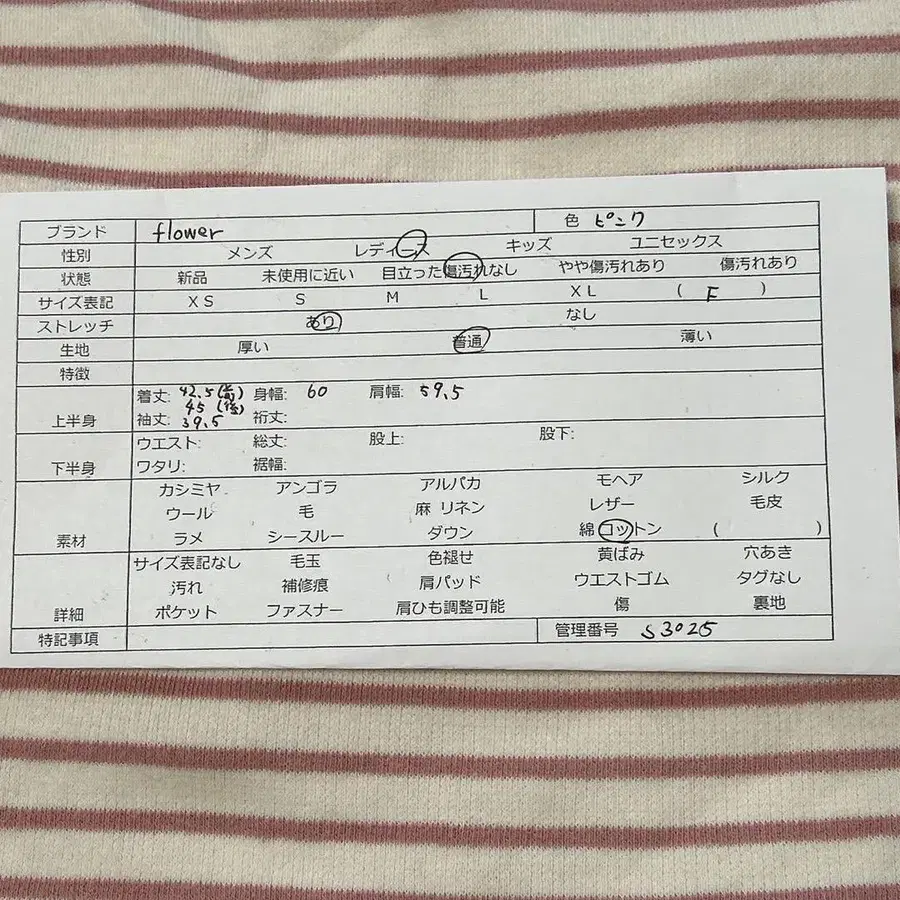 ブランド flower 色 ピンク
性別 メンズ レディース キッズ ユニセックス
状態 新品 未使用に近い 目立った傷汚れなし やや傷汚れあり 傷汚れあり
サイズ表記 XS S M L XL ( F )
ストレッチ あり なし
生地 厚い 普通 薄い
特徴
上半身 着丈: 42.5(前) 身幅: 60 肩幅: 59.5
45(後)
袖丈: 39.5 裄丈:
下半身 ウエスト: 総丈: 股上: 股下:
ワタリ: 裾幅:
素材 カシミヤ アンゴラ アルパカ モヘア シルク
ウール 毛 麻 リネン レザー 毛皮
ラメ シースルー ダウン 綿 コットン ( )
詳細 サイズ表記なし 毛玉 色褪せ 黄ばみ 穴あき
汚れ 補修痕 肩パッド ウエストゴム タグなし
ポケット ファスナー 肩ひも調整可能 傷 裏地
特記事項 管理番号 S3025